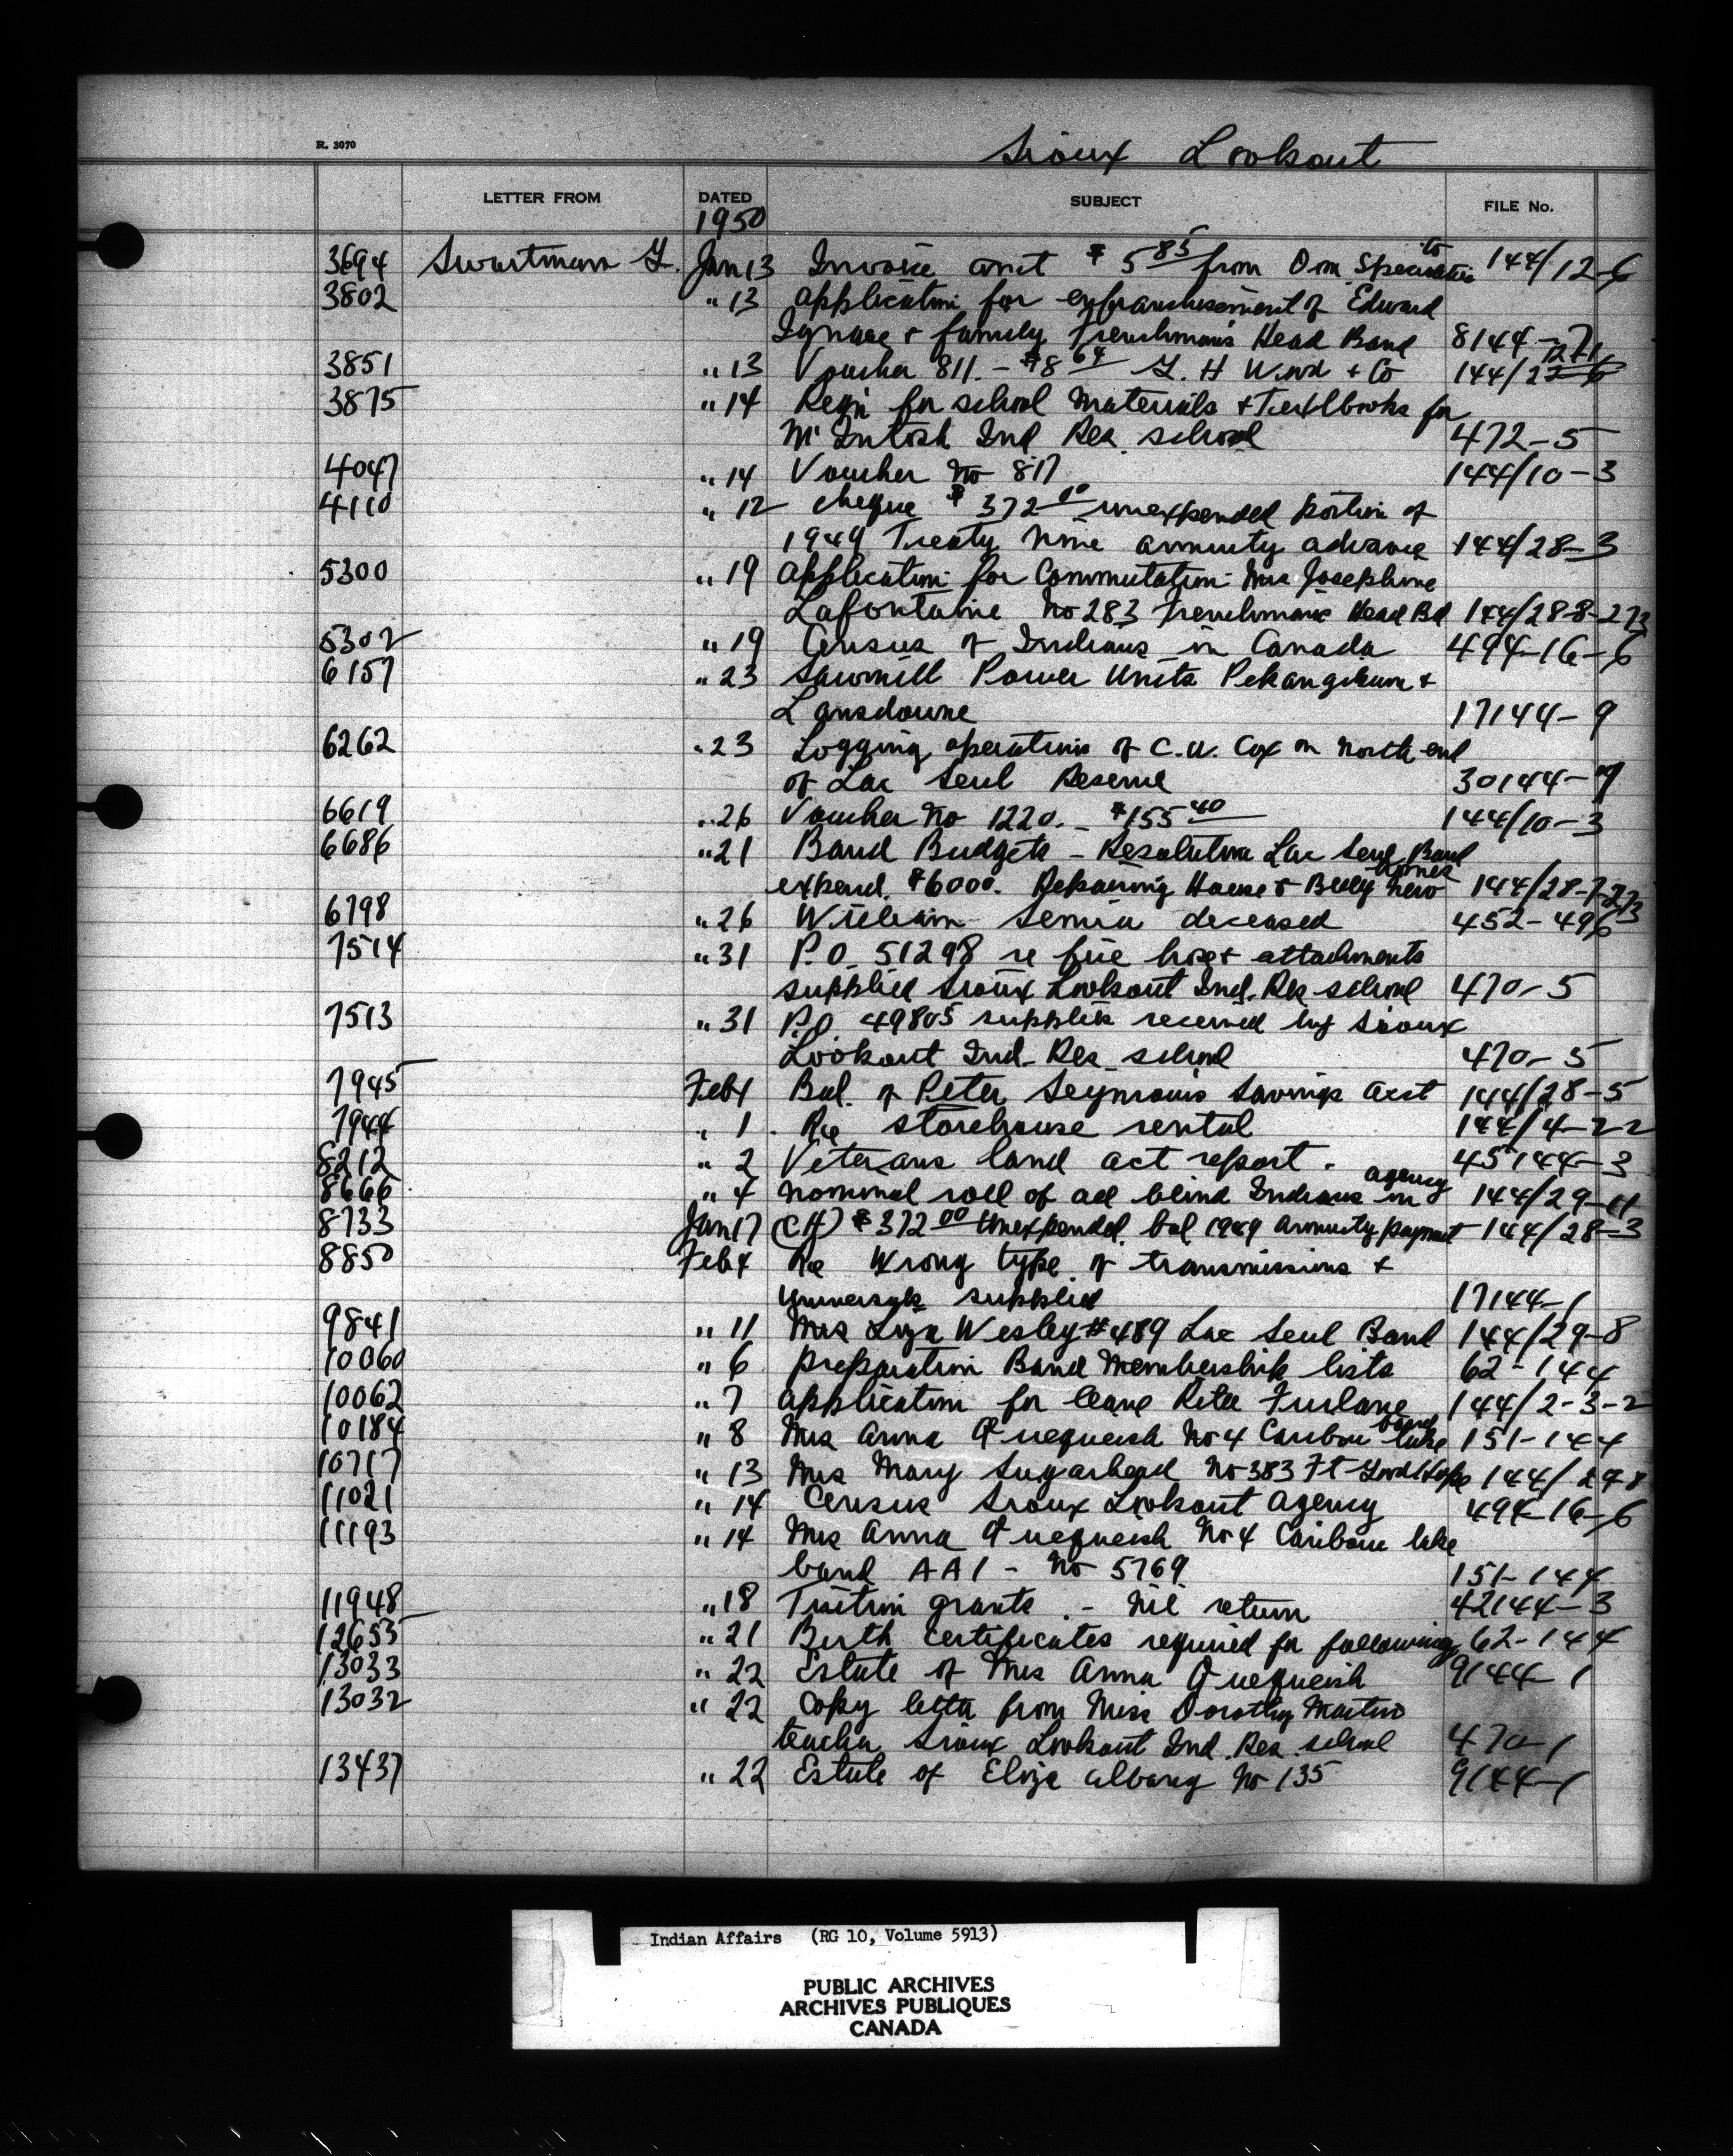 R. 3070
Sioux Lookout
LETTER FROM DATED SUBJECT FILE No.
1950
3694 Swartman G. Jan 13 Invoice amt $5 85 from Dom Specialties Co 144/12-6
3802 " 13 Application for enfranchisement of Edward
Ignace + family Frenchman's Head Band 8144-7
3851 " 13 Voucher 811. - $8 64 G. H Wood + Co 144/
3875 " 14 Reqn for school materials + Textbooks for
McIntosh Ind Res. school 472-5
4047 " 14 Voucher No 817 144/10-3
4110 " 12 cheque $372 00 unexpended portion of
1949 Treaty Nine annuity advance 144/28-3
5300 " 19 Application for Commutation Mrs Josephine
Lafontaine No 283 Frenchman's Head Bd 144/28-8-273
5302 " 19 Census of Indians in Canada 494-16-6
6157 " 23 Sawmill Power Units Pekangikum +
Lansdowne 17144-9
6262 " 23 Logging operations of C.W. Cox on North end
of Lac Seul Reserve 30144-9
6619 " 26 Voucher No 1220. - $155 40 144/10-3
6686 " 21 Band Budgets - Resolution Lac Seul Band
expend. $6000. Repairing Houses & Buy new homes 144/28-7-273
6798 " 26 William Semia deceased 452-496
7514 " 31 P.O. 51298 re fire hose + attachments
supplied Sioux Lookout Ind. Res school 470-5
7513 " 31 P.O. 49805 supplies received by Sioux
Lookout Ind. Res school 470-5
7945 Feb 1 Bal. of Peter Seymour's Savings acct 144/28-5
7944 " 1 Re storehouse rental 144/4-22
8212 " 2 Veterans land act report. 45144-3
8666 " 4 nominal roll of all blind Indians in agency 144/29-11
8733 Jan 17 (CH) $372 00 Unexpended bal 1949 annuity payment 144/28-3
8850 Feb 4 Re Wrong type of transmissions +
supplied 17144-1
9841 " 11 Mrs Liza Wesley #489 Lac Seul Band 144/29-8
10060 " 6 preparation Band Membership lists 62-144
10062 " 7 Application for leave Rita Furlane 144/2-3-2
10184 " 8 Mrs Anna Quequeish No 4 Caribou lake band 151-144
10717 " 13 Mrs Mary Sugarhead No 383 Ft Good Hope 144/29-8
11021 " 14 Census Sioux Lookout Agency 494-16-6
11193 " 14 Mrs Anna Quequeish No 4 Caribou lake
band AA1 - No 5769 151-144
11948 " 18 Tuition grants. - Nil return 42144-3
12653 " 21 Birth Certificates required for following 62-144
13033 " 22 Estate of Mrs Anna Quequeish 9144-1
13032 " 22 Copy letter from Miss Dorothy Martin
teacher Sioux Lookout Ind. Res. school 470-1
13437 " 22 Estate of Eliza Albany No 135 9144-1
Indian Affairs (RG 10, Volume 5913)
PUBLIC ARCHIVES
ARCHIVES PUBLIQUES
CANADA